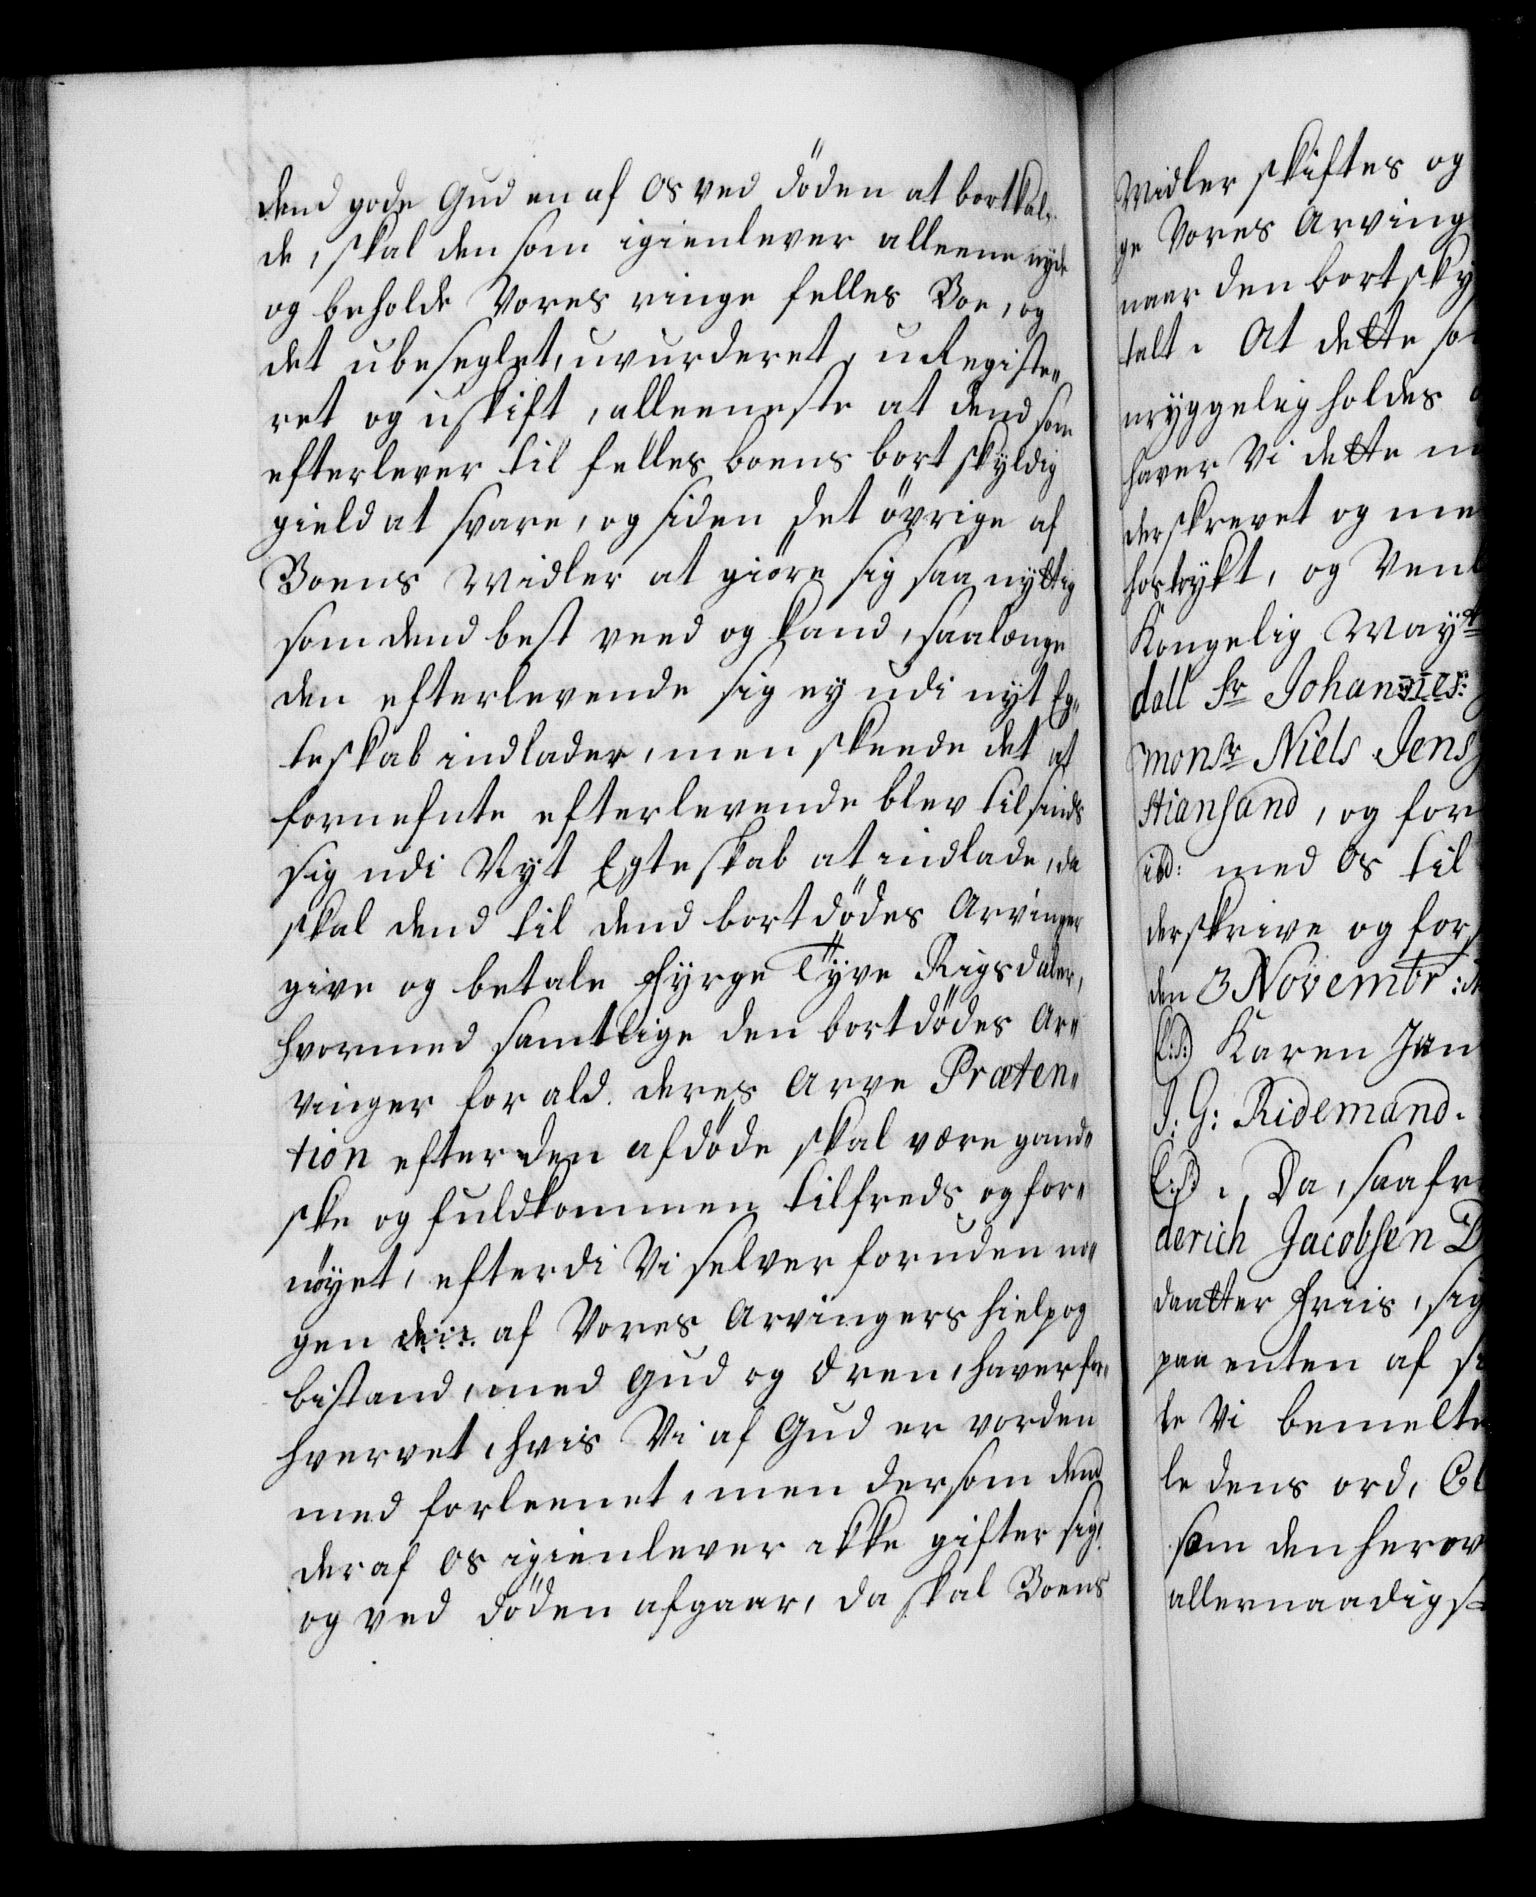 dend gode Gud en af os ved döden at bortkal„
de, skal den som igienlever alleene nyde
og beholde Vores ringe felles Boe, og
det ubeseglet, uvurderet, uRegiste„
ret og uskift, alleeneste at dend som
efterlever til felles boens bort skyldig
gield at svare, og siden det övrige af
Boens Midler at giöre sig saa nyttig
som dend best veed og kand, saalænge
den efterlevende sig ey udi nyt Eg„
teskab indlader, men skeede det at
fornefnte efterlevende blev tilsinds
sig udi Nyt Egteskab at indlade, da
skal dend til dend bortdödes Arvinger
give og betale Fyrge Tyve Rigsdaler,
hvormed samtlige den bortdödes Ar„
vinger for ald deres Arve Præten„
tion efter den afdöde skal være gand„
ske og fuldkommen tilfreds og for„
nöyet, efterdi Vi selver foruden no„
gen af Vores Arvingers hielp og
bistand, med Gud og Æren, haver for„
hvervet, hvis Vi af Gud er vorden
med forleenet, men dersom dend
der af os igienlever ikke gifter sig,
og ved döden afgaar, da skal Boens
Midler skiftes og
ge Vores Arving
naar den bortsky
talt. At dette so
ryggelig holdes
haver Vi dette
derskrevet og me
hostrykt, og Ven
Kongelig May
dall Sr Johannes
Monsr Niels Jens
stiansand, og for
ibd: med os til
derskrive og fors
den 3 Novembr:
(L:S:) Karen Jan
J: G: Ridemand.
(L:S:), Da, saafr
derich Jacobsen D
daatter Friis, sig
paa enten af si
le Vi bemelte
le dens ord, Cl
som den herov
allernaadigs